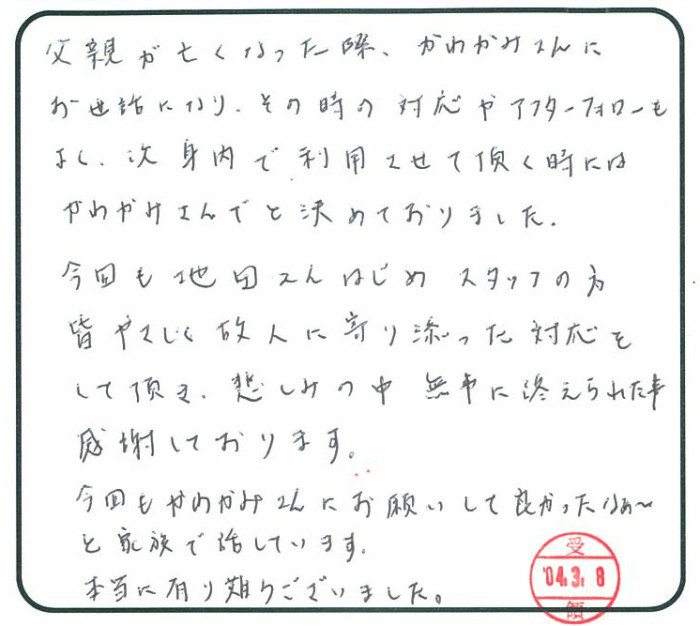 父親が亡くなった際、かわかみさんに
お世話になり、その時の対応やアフターフォローも
よく、次身内で利用させて頂く時には
かわかみさんでと決めておりました。
今回も池田さんはじめスタッフの方
皆やさしく故人に寄り添った対応を
して頂き、悲しみの中無事に終えられた事
感謝しております。
今回もかわかみさんにお願いして良かったなぁ〜
と家族で話しています。
本当に有り難うございました。
受
'04.3.8
領